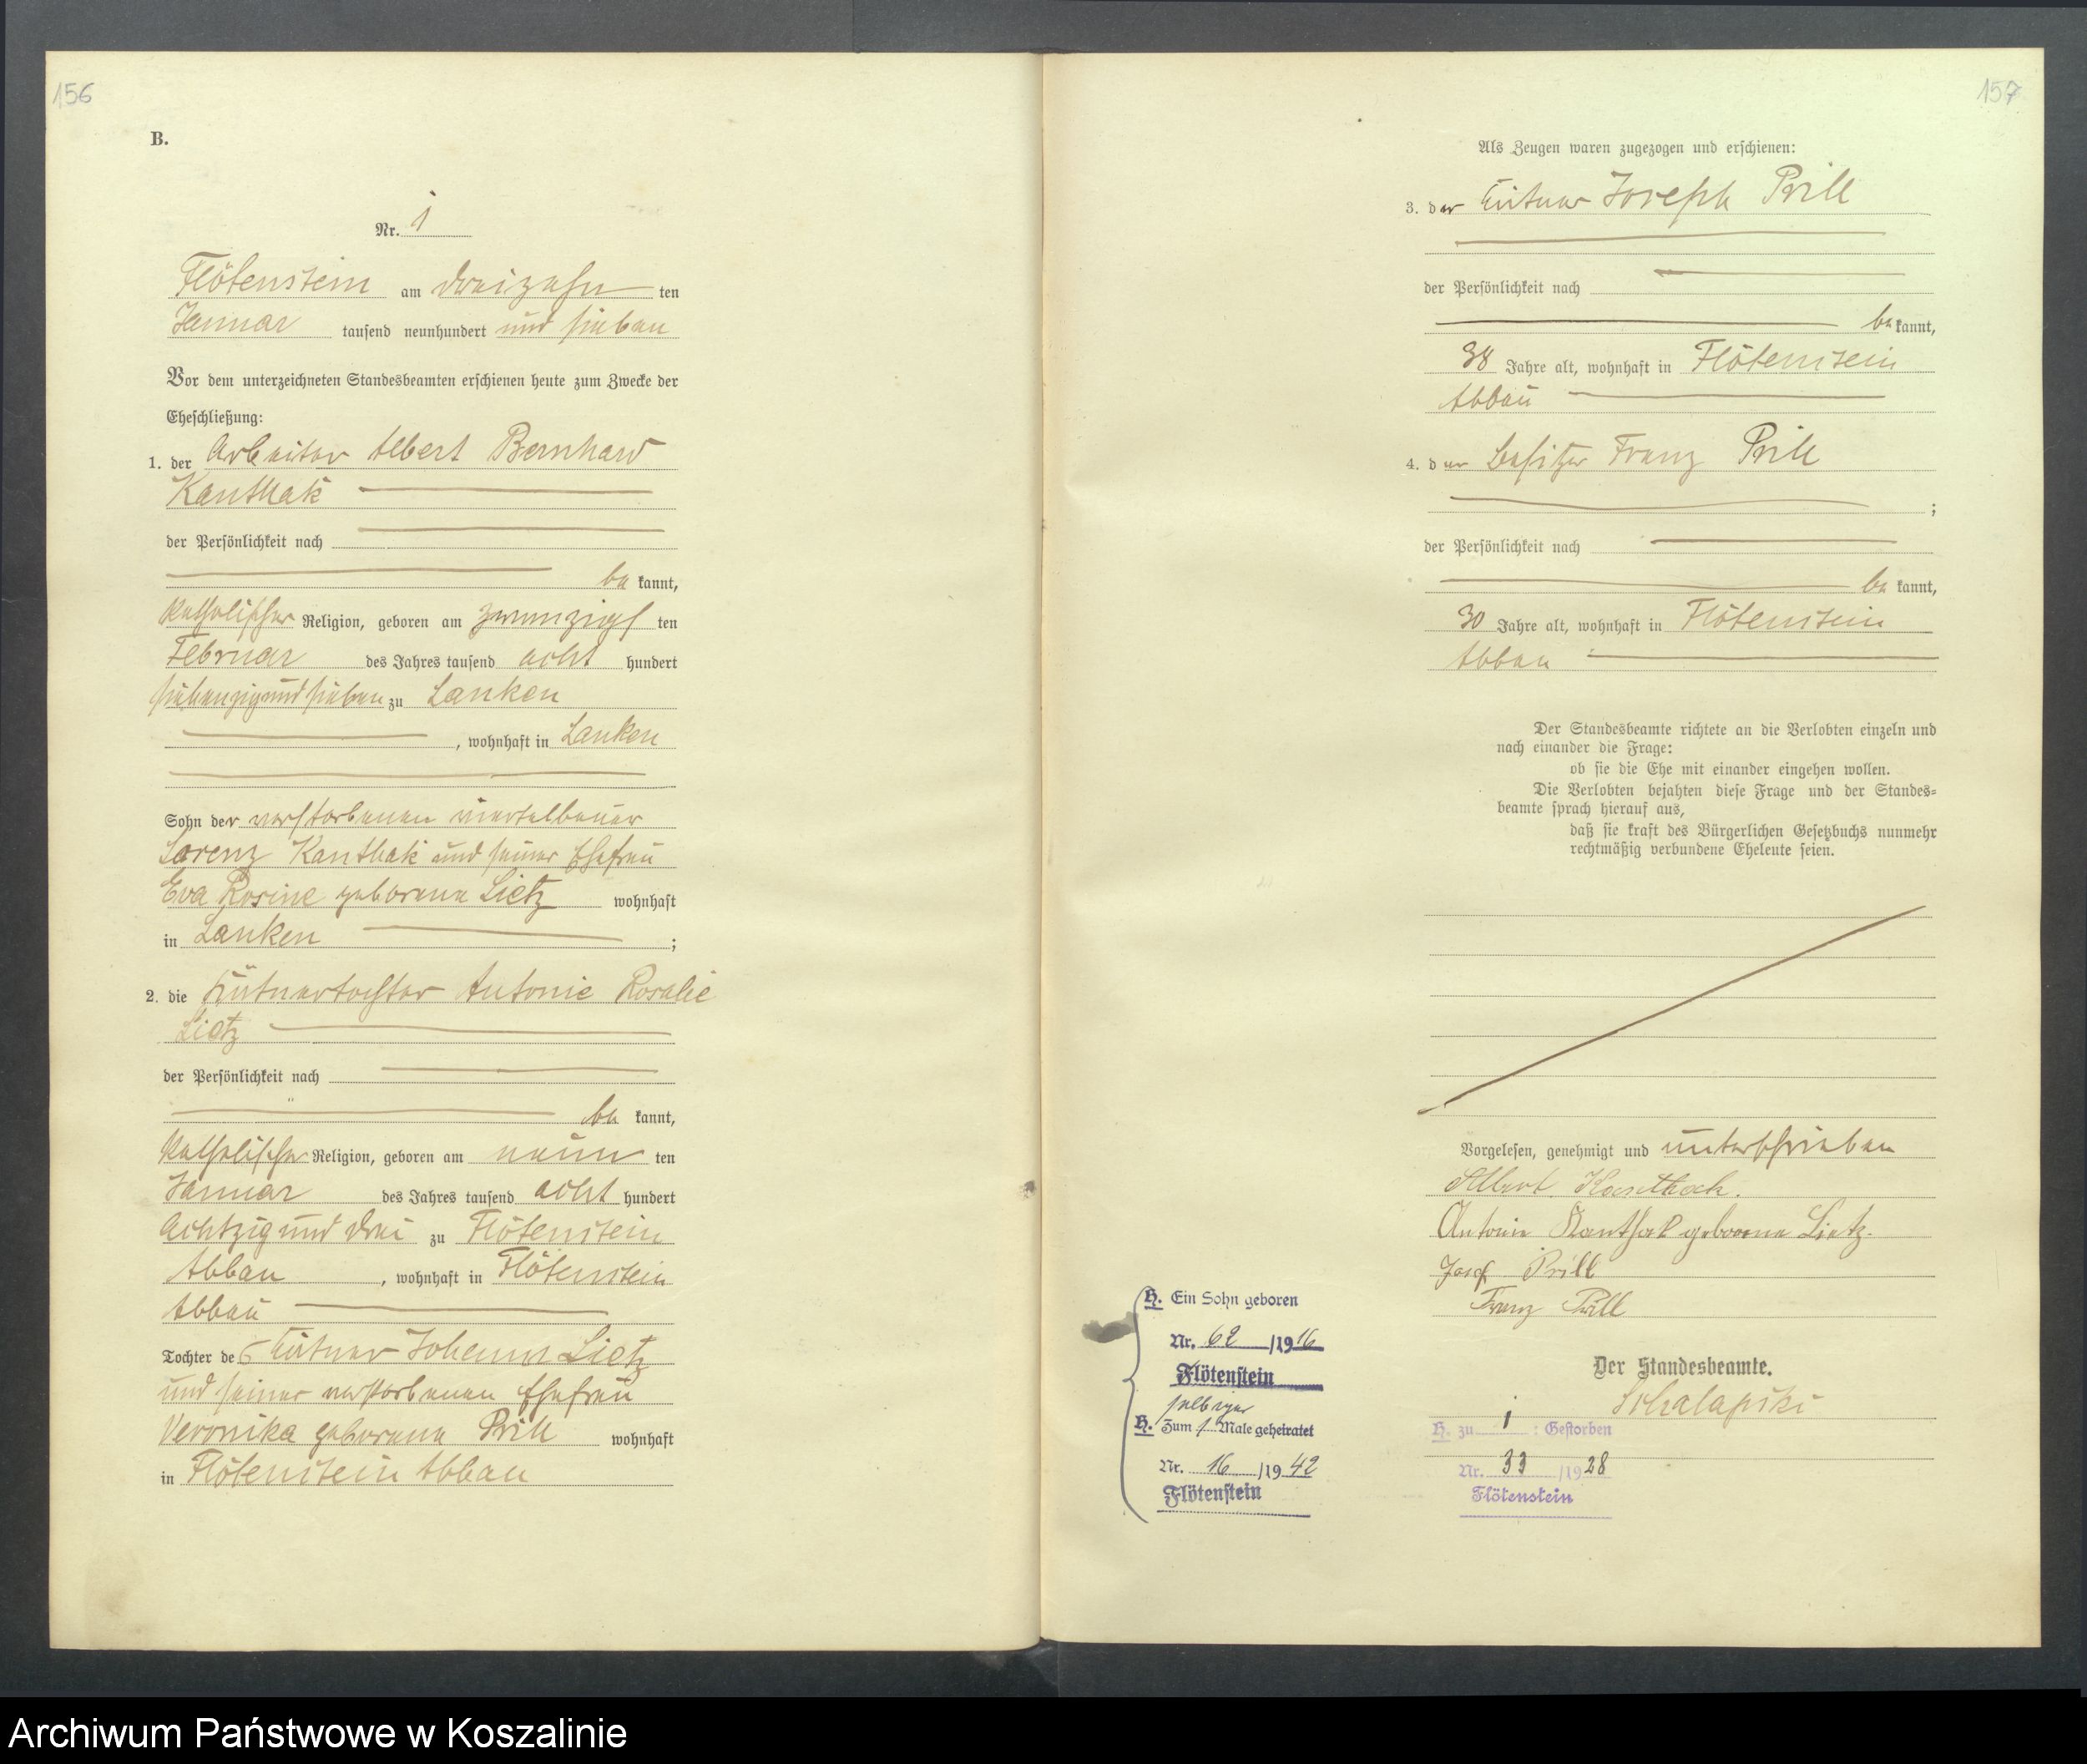 156
B.
Nr. 1
Flötenstein am dreizehn ten
Januar tausend neunhundert und sieben
Vor dem unterzeichneten Standesbeamten erschienen heute zum Zwecke der
Eheschließung:
1. der Arbeiter Albert Bernhard
Kanthak
der Persönlichkeit nach
be kannt,
katholischer Religion, geboren am zwanzigs ten
Februar des Jahres tausend acht hundert
siebenzig und sieben zu Lanken
, wohnhaft in Lanken
Sohn der verstorbenen Viertelbauer
Lorenz Kanthak und seiner Ehefrau
Eva Rosine geborene Lietz wohnhaft
in Lanken ;
2. die Kütnertochter Antonie Rosalie
Lietz
der Persönlichkeit nach
be kannt,
katholischer Religion, geboren am neun ten
Januar des Jahres tausend acht hundert
achtzig und drei zu Flötenstein
Abbau , wohnhaft in Flötenstein
Abbau
Tochter des Kütner Johann Lietz
und seiner verstorbenen Ehefrau
Veronika geborene Prill wohnhaft
in Flötenstein Abbau
157
Als Zeugen waren zugezogen und erschienen:
3. der Kütner Joseph Prill
der Persönlichkeit nach
be kannt,
38 Jahre alt, wohnhaft in Flötenstein
Abbau
4. der Besitzer Franz Prill
;
der Persönlichkeit nach
be kannt,
30 Jahre alt, wohnhaft in Flötenstein
Abbau
Der Standesbeamte richtete an die Verlobten einzeln und
nach einander die Frage:
ob sie die Ehe mit einander eingehen wollen.
Die Verlobten bejahten diese Frage und der Standes-
beamte sprach hierauf aus,
daß sie kraft des Bürgerlichen Gesetzbuchs nunmehr
rechtmäßig verbundene Eheleute seien.
Vorgelesen, genehmigt und unterschrieben
Albert Kanthack.
Antonie Kanthak geborene Lietz.
Josef Prill
Franz Prill
Der Standesbeamte.
H. Ein Sohn geboren
Nr. 62 /19 16
Flötenstein
selbiger
H. Zum 1. Male geheiratet
Nr. 16 /19 42
Flötenstein
H. zu 1 : Gestorben
Nr. 33 /19 28
Flötenstein
Archiwum Państwowe w Koszalinie